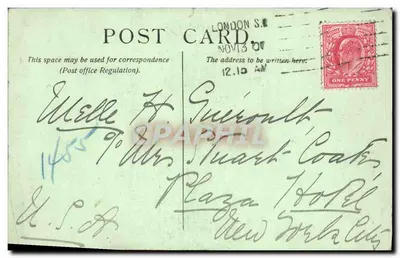 POST CARD.
This space may be used for correspondence
(Post office Regulation).
The address to be written here.
LONDON S.E
NOV 13 07
12.15 AM
ONE PENNY
Melle H Guéroult
c/o Mrs Stuart Coats
Plaza Hotel
New York City
U.S.A
1455
CPAPHIL